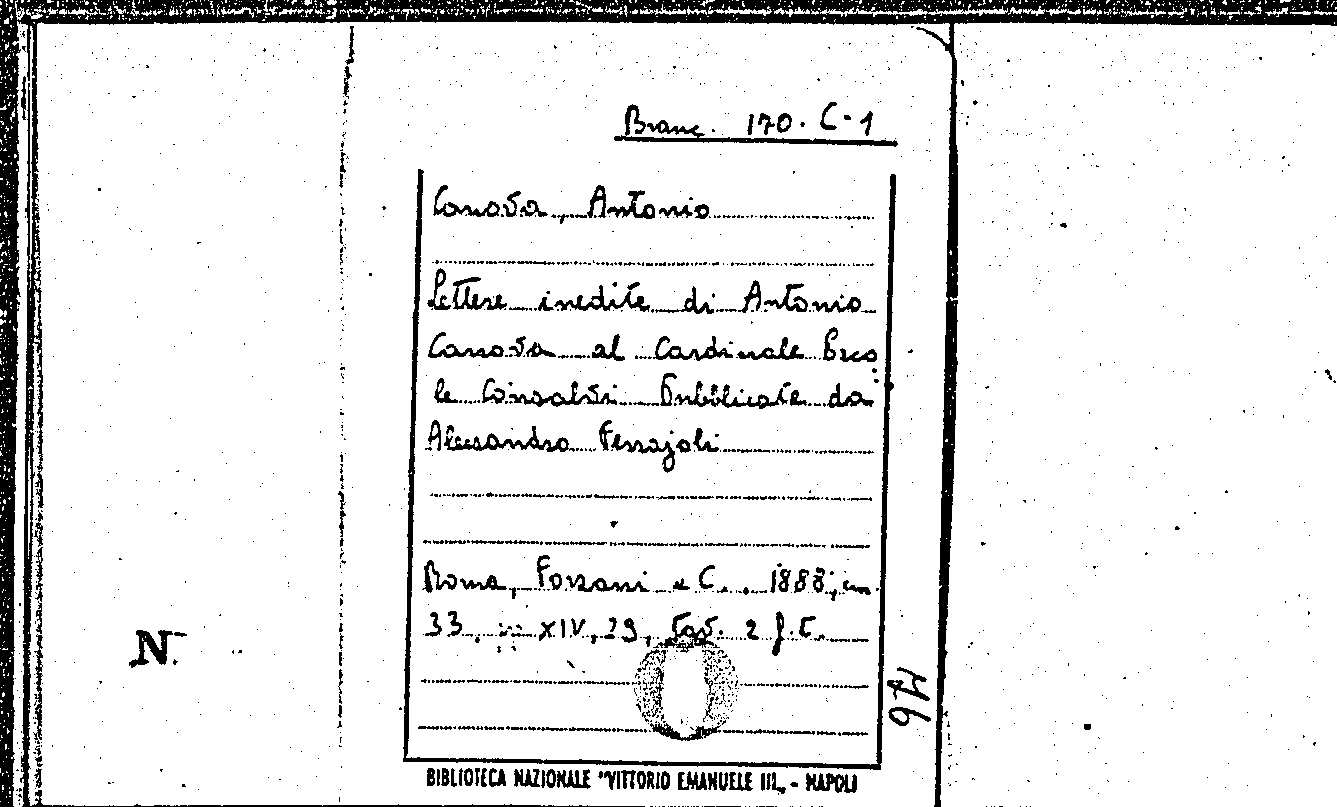 Branc. 170. C. 1
Canova, Antonio
Lettere inedite di Antonio
Canova al Cardinale Erco
le Consalvi Pubblicate da
Alessandro Ferrajoli
Roma, Forzani e C., 1888, cm.
33, pp. XIV, 29, tav. 2 f.t.
N
976
BIBLIOTECA NAZIONALE "VITTORIO EMANUELE III„ - NAPOLI